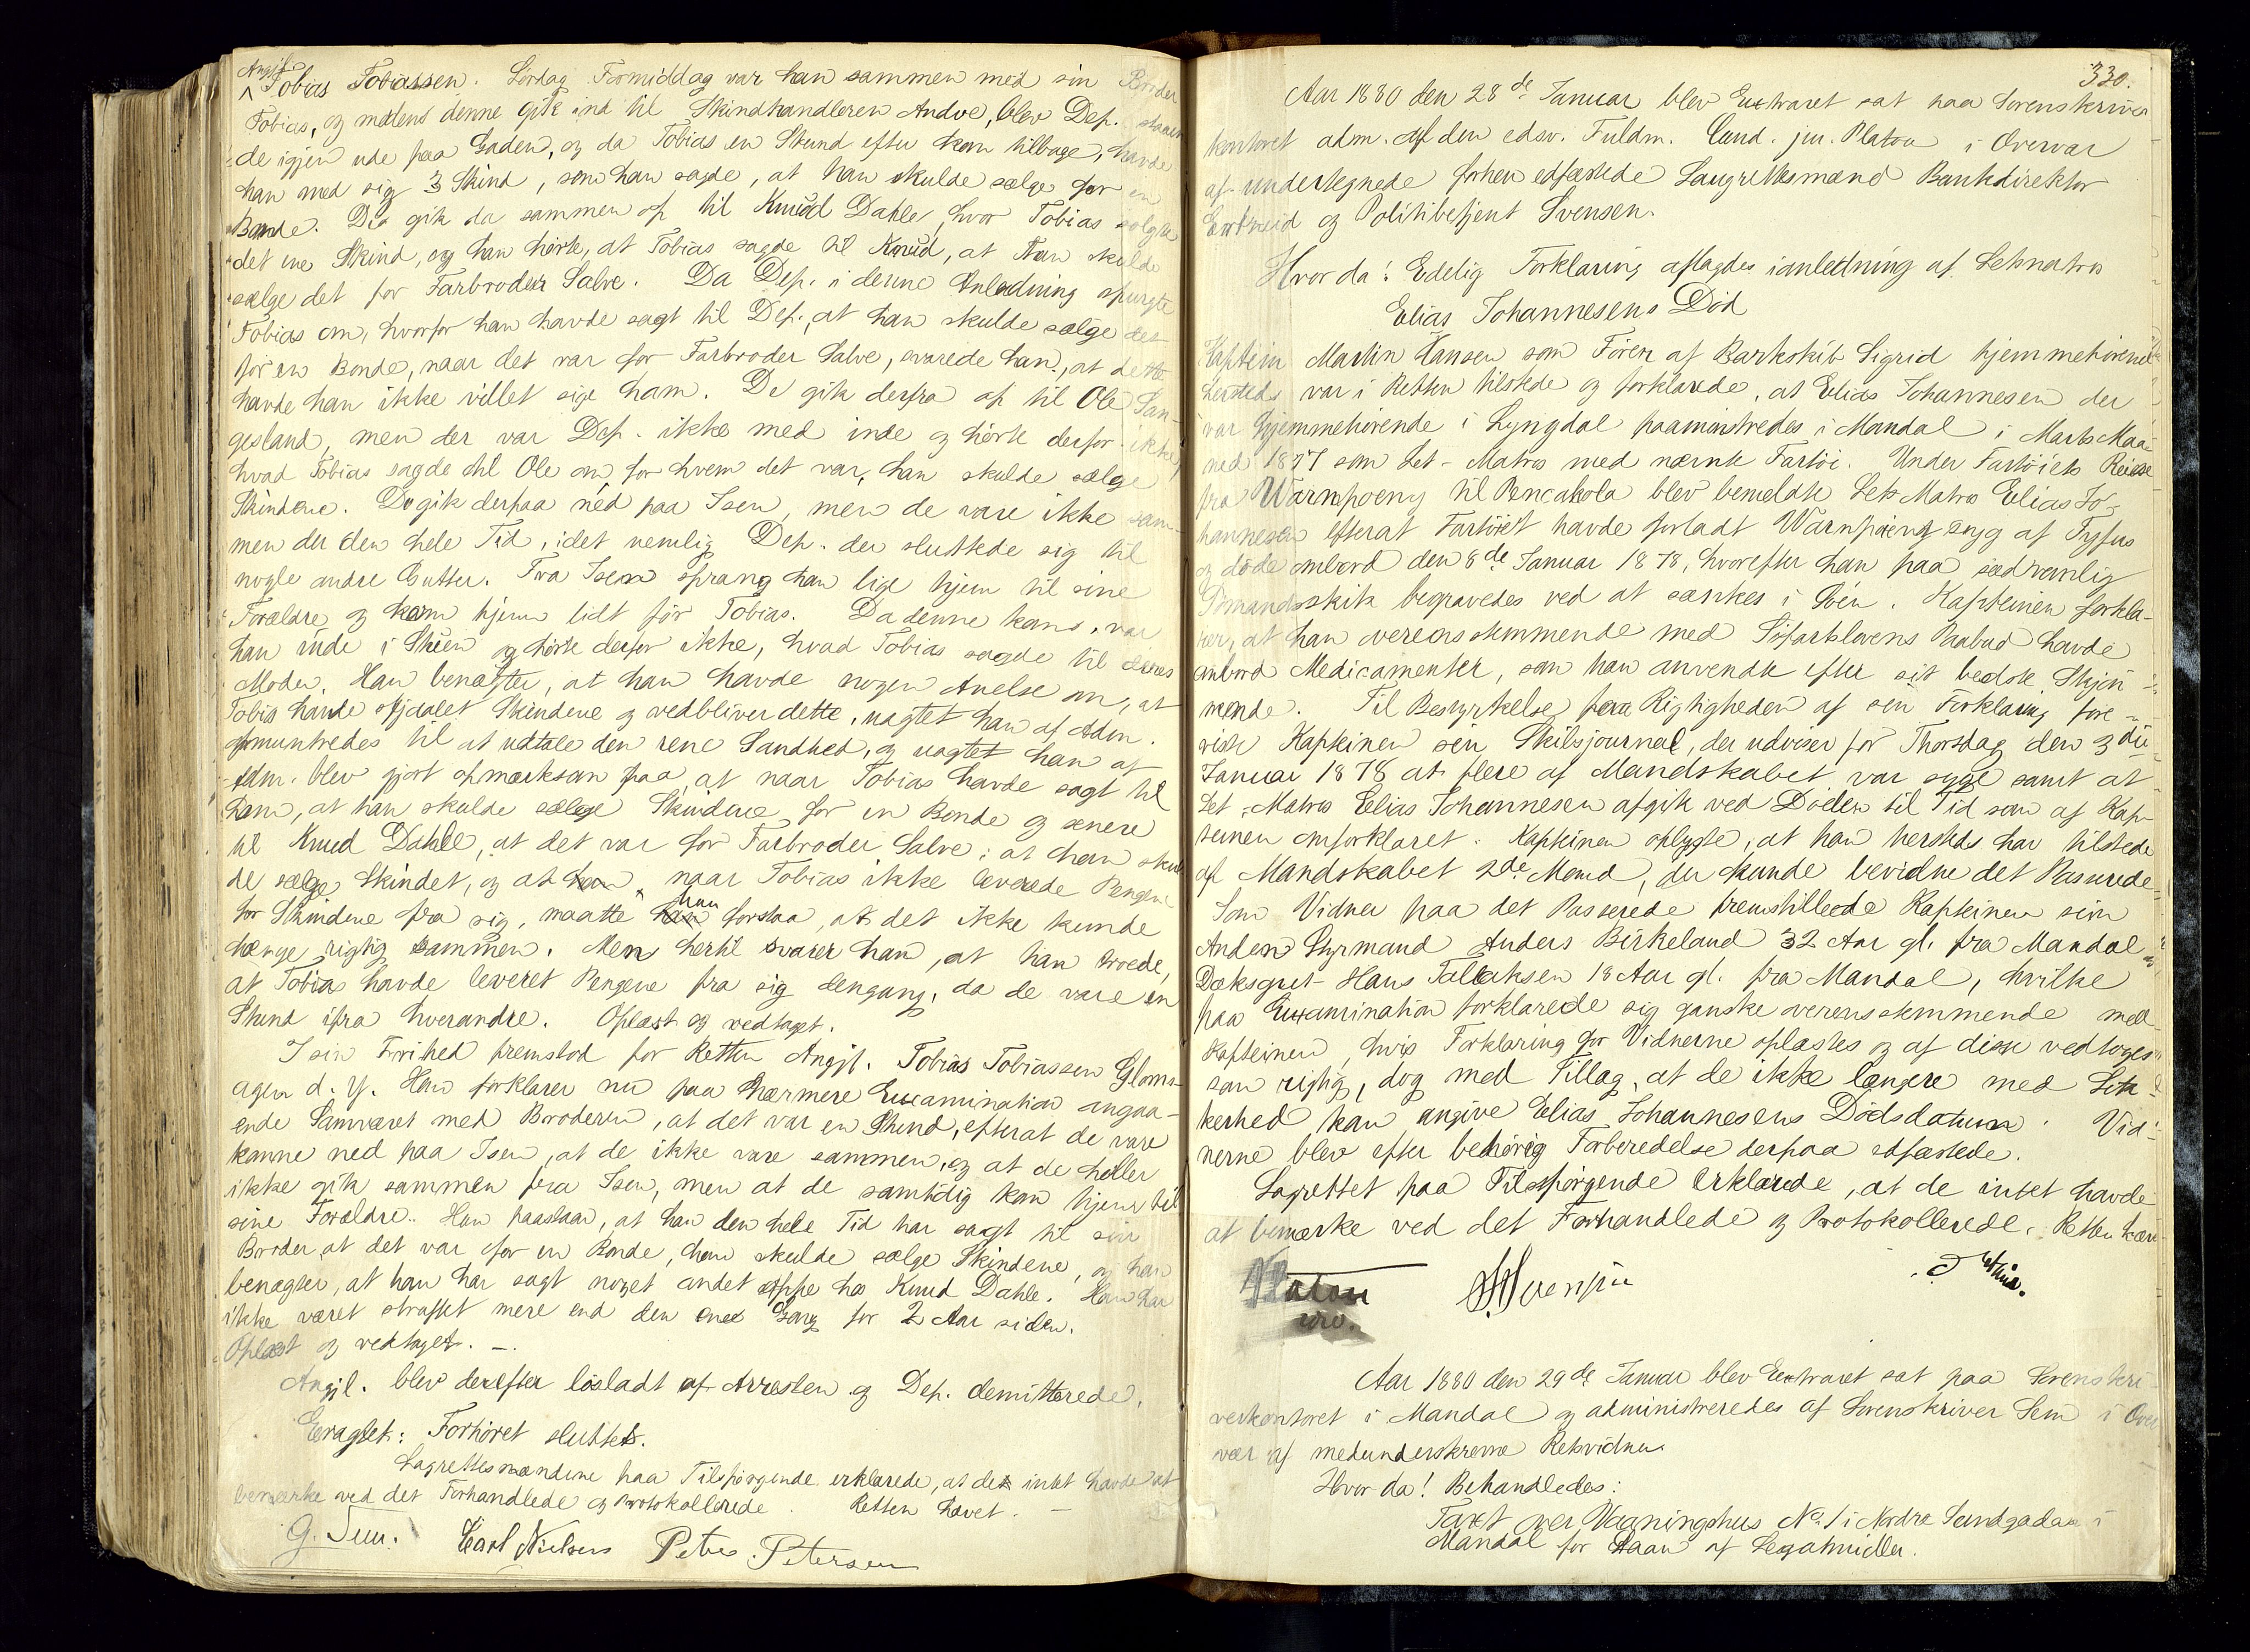 Angjl.
Tobias Tobiassen. Lördag Formiddag var han sammen med sin Broder
Tobias, og medens denne gik ind til Skindhandleren Andve, blev Dep. staaen-
de igjen ude paa Gaden, og da Tobias en Stund efter kom tilbage, havde
han med sig 3 Skind, som han sagde, at han skulde sælge for en
Bonde. De gik da sammen op til Knud Dahle, hvor Tobias solgte
det ene Skind, og han hörte, at Tobias sagde til Knud, at han skulde
sælge det for Farbroder Salve. Da Dep. i denne Anledning spurgte
Tobias om, hvorfor han havde sagt til Dep., at han skulde sælge det
for en Bonde, naar det var for Farbroder Salve, svarede han, at dette
havde han ikke villet sige ham. De gik derfra op til Ole San-
gesland, men der var Dep. ikke med inde og hörte derfor ikke,
hvad Tobias sagde til Ole om, for hvem det var, han skulde sælge
Skindene. De gik derpaa ned paa Isen, men de vare ikke sam-
men der den hele Tid, idet nemlig Dep. der sluttede sig til
nogle andre Gutter. Fra Isen sprang han lige hjem til sine
Forældre og kom hjem lidt för Tobias. Da denne kom, var
han inde i Stuen og hörte derfor ikke, hvad Tobias sagde til deres
Moder. Han benægter, at han havde nogen Anelse om, at
Tobias havde stjaalet Skindene og vedbliver dette, uagtet han af Adm.
opmuntredes til at udtale den rene Sandhed, og uagtet han af
Adm. blev gjort opmærksom paa, at naar Tobias havde sagt til
ham, at han skulde sælge Skindene for en Bonde og senere
til Knud Dahle, at det var for Farbroder Salve, at han skul-
de sælge Skindet, og at han naar Tobias ikke leverede Pengene
for Skindene fra sig, maatte han forstaa, at det ikke kunde
hænge rigtig sammen. Men hertil svarer han, at han troede,
at Tobias havde leveret Pengene fra sig dengang, da de vare en
Stund ifra hverandre. Oplæst og vedtaget.
I sin Frihed fremstod for Retten Angjl. Tobias Tobiassen Gloms-
agen d. y. Han forklarer nu paa nærmere Examination angaa-
ende Samværet med Broderen, at det var en Stund, efterat de vare
komne ned paa Isen, at de ikke vare sammen, og at de heller
ikke gik sammen fra Isen, men at de samtidig kom hjem til
sine Forældre. Han paastaar, at han den hele Tid har sagt til sin
Broder, at det var for en Bonde, han skulde sælge Skindene, og han
benægter, at han har sagt noget andet oppe hos Knud Dahle. Han har
ikke været straffet mere end den ene Gang for 2 Aar siden.
Oplæst og vedtaget. —.
Angjl. blev derefter lösladt af Arresten og Dep. demitterede.
Eragtet: Forhöret sluttet.
Lagrettesmændene paa Tilspörgende erklærede, at de intet havde at
bemærke ved det Forhandlede og Protokollerede. Retten hævet. —
G. Sem. Carl Nielsen Peter Petersen
330.
Aar 1880 den 28de Januar blev Extraret sat paa Sorenskriver-
kontoret adm. af den edsv. Fuldm. Cand. jur. Platou i Overvær
af undertegnede forhen edfæstede Laugrettesmænd Bankdirektör
og Politibetjent Svensen.
Hvor da! Edelig Forklaring aflagdes i anledning af Letmatros
Elias Johannesens Död
Kaptein Martin Hansen som Förer af Barkskib Sigrid hjemmehörende
hersteds var i Retten tilstede og forklarede, at Elias Johannesen der
var hjemmehörende i Lyngdal paamönstredes i Mandal i Marts Maa-
ned 1877 som Let-Matros med nævnte Fartöi. Under Fartöiets Reise
fra Warnpoeny til Pencakola blev bemeldte Let Matros Elias Jo-
hannesen efterat Fartöiet havde forladt Warnpoeny syg af Tyfus
og döde ombord den 8de Januar 1878, hvorefter han paa sædvanlig
Sömandsskik begravedes ved at sænkes i Söen. Kapteinen forkla-
rer, at han overensstemmende med Söfartslovens Paabud havde
ombord Medicamenter, som han anvendte efter sit bedste Skjön-
nende. Til Bestyrkelse paa Rigtigheden af sin Forklaring fore-
viste Kapteinen sin Skibsjournal, der udviser for Thorsdag den 3die
Januar 1878 at flere af Mandskabet var syge samt at
Let-Matros Elias Johannesen afgik ved Döden til Tid som af Kap-
teinen omforklaret. Kapteinen oplyste, at han hersteds har tilstede
af Mandskabet 2de Mand, der kunde bevidne det Passerede.
Som Vidner paa det Passerede fremstillede Kapteinen sin
Anden Styrmand Anders Birkeland 32 Aar gl. fra Mandal og
Dæksgut Hans Tallaksen 18 Aar gl. fra Mandal, hvilke
paa Examination forklarede sig ganske overensstemmende med
Kapteinen, hvis Forklaring for Vidnerne oplæstes og af disse vedtoges
som rigtig, dog med Tillæg, at de ikke længere med Sik-
kerhed kan angive Elias Johannesens Dödsdatum. Vid-
nerne blev efter behörig Forberedelse derpaa edfæstede.
Lagrettet paa Tilspörgende erklærede, at de intet havde
at bemærke ved det Forhandlede og Protokollerede. Retten hæv-
Platou Svensen
Aar 1880 den 29de Januar blev Extraret sat paa Sorenskri-
verkontoret i Mandal og administreredes af Sorenskriver Sem i Over-
vær af medunderskrevne Retsvidner
Hvor da! Behandledes:
Taxt over Vaaningshus No. 1 i Nordre Sandgaden i
Mandal for Laan af Legatmidler.